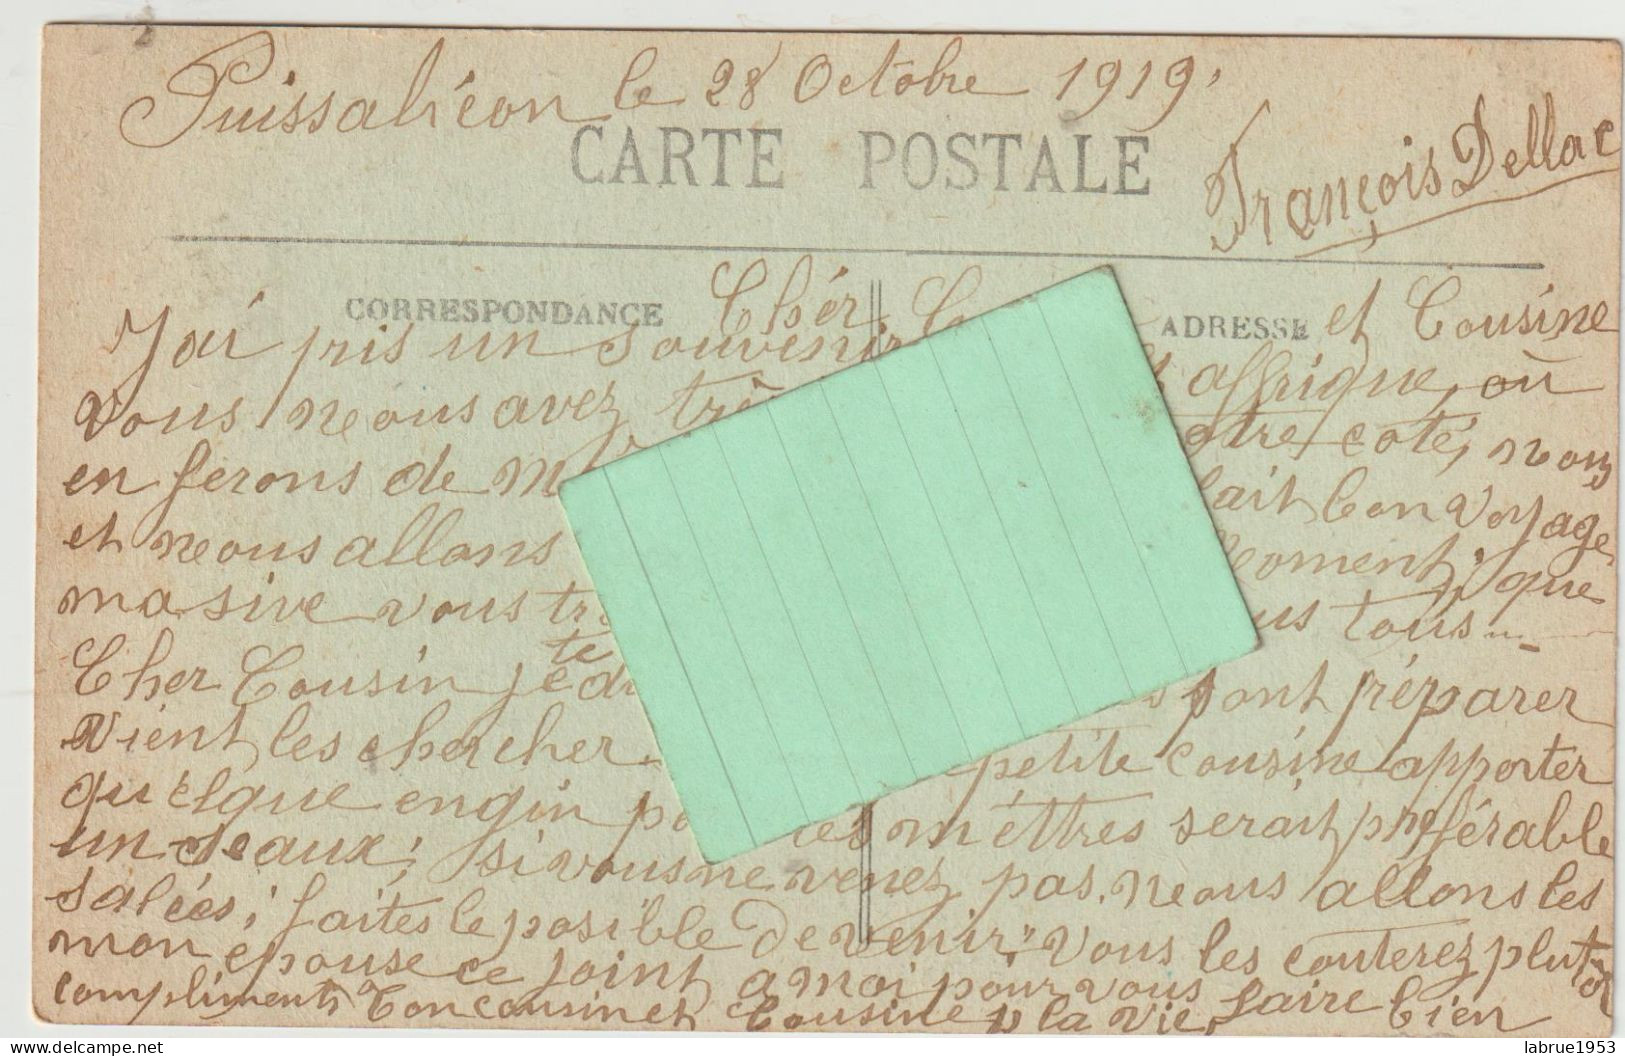 Puissalicon le 28 Octobre 1919,
CARTE POSTALE
François Dellac
CORRESPONDANCE
ADRESSE
Chér C et Cousine
J'ai pris un souvenir d'affrique, où
vous nous avez tr otre coté, nous
en ferons de m fait bon voyage
et nous allons moment, que
masive vous tr ous tous
Cher Cousin je te d s sont préparer
vient les chercher petite cousine apporter
quelque engin po les méttres serait préférable
un seaux; si vous ne venez pas, nous allons les
salées; faites le posible de venir, vous les couterez plutot
mon epouse ce joint a moi pour vous faire bien
compliments ton cousin et Cousine p la vie,
labrue1953